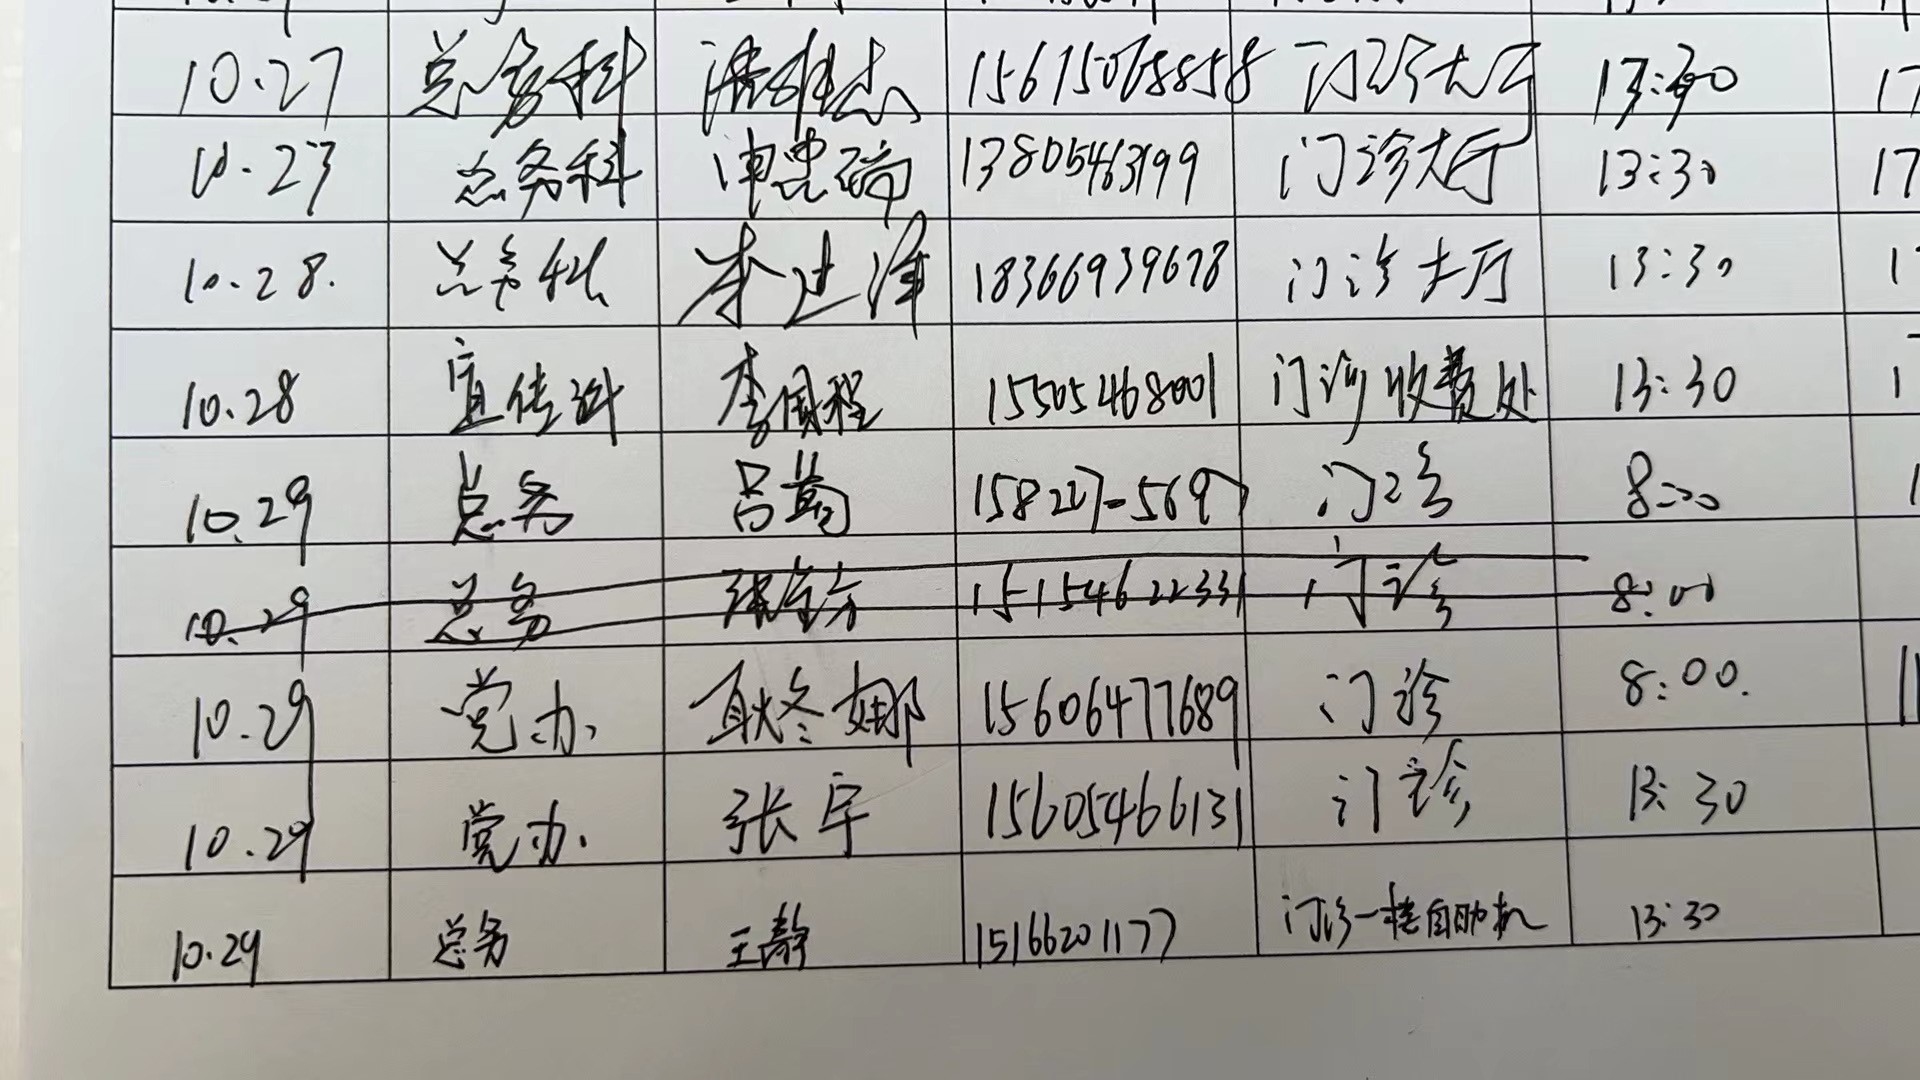 10.27 总务科 15675068858 门诊大厅 13:30 17
10.27 总务科 申忠瑞 13805463199 门诊大厅 13:30 17
10.28. 总务科 李过泽 18366939678 门诊大厅 13:30 1
10.28 宣传科 李国程 15505468001 门诊收费处 13:30 1
10.29 总务 吕菊 门诊 8:00 1
10.29 总务 15154622331 门诊 8:00
10.29 党办 耿冬娜 15606477689 门诊 8:00. 11
10.29 党办. 张宇 15605466131 门诊 13:30
10.29 总务 王静 15166201177 门诊一楼自助机 13:30